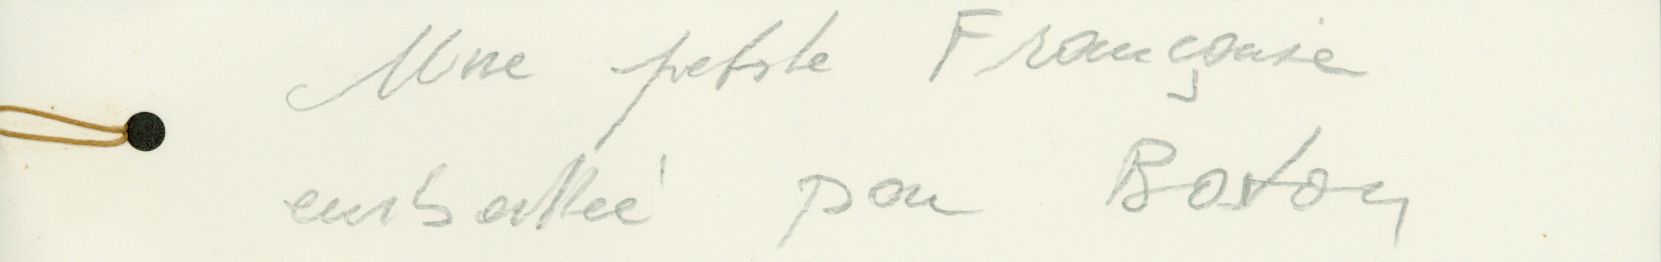 Une petite Française
emballé par Boston